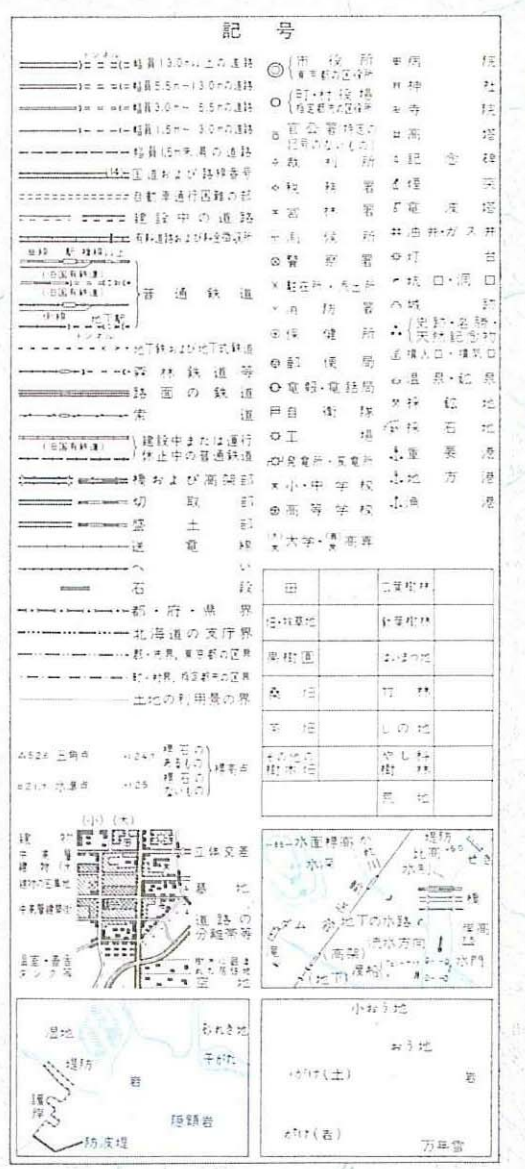 記号
トンネル
幅員13.0m以上の道路
幅員5.5m-13.0mの道路
幅員3.0m- 5.5mの道路
幅員1.5m- 3.0mの道路
幅員1.5m未満の道路
国道および路線番号
自動車通行困難の部
建設中の道路
有料道路および料金徴収所
単線 駅 複線以上
(旧国有鉄道)
(旧国有鉄道)
側線 地下駅
トンネル
普通鉄道
地下鉄および地下式鉄道
森林鉄道等
路面の鉄道
索道
(旧国有鉄道)
建設中または運行
休止中の普通鉄道
橋および高架部
切取部
盛土部
送電線
へい
石段
都・府・県界
北海道の支庁界
郡・市界、東京都の区界
町・村界、指定都市の区界
土地の利用景の界
市役所
東京都の区役所
町・村役場
指定都市の区役所
官公署(特定の
記号のないもの)
裁判所
税務署
営林署
警察署
駐在所・派出所
消防署
保健所
郵便局
電報・電話局
自衛隊
工場
発電所・変電所
小・中学校
高等学校
(大)大学・(専)高専
病院
神社
寺院
高塔
記念碑
煙突
電波塔
油井・ガス井
灯台
坑口・洞口
城跡
史跡・名勝・
天然記念物
噴火口・噴気口
温泉・鉱泉
採鉱地
採石地
重要港
地方港
漁港
田
広葉樹林
畑・牧草地
針葉樹林
果樹園
はいまつ地
桑畑
竹林
茶畑
しの地
その他の
樹木畑
やし科
樹林
荒地
△52.6 三角点
・124.7
標石の
あるもの
標高点
□21.7 水準点
・125
標石の
ないもの
(小) (大)
建物
中高層
建物
建物の密集地
中高層建築街
温室・畜舎
タンク等
立体交差
墓地
道路の
分離帯等
樹木に囲ま
れた居住地
空地
水面標高
水深
堤防
比高
せき
水制
橋
地下の水路
流水方向
(高架)
(地下)
水門
湿地
堤防
護岸
防波堤
岩
隠顕岩
れき地
干がた
小おう地
おう地
がけ(土)
岩
がけ(岩)
万年雪